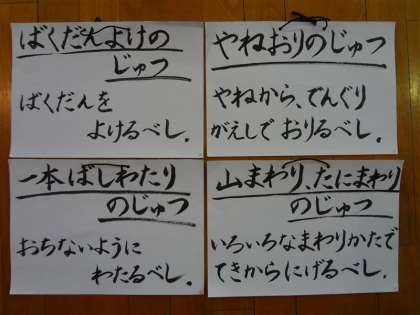 ばくだんよけの
じゅつ
ばくだんを
よけるべし.
やねおりのじゅつ
やねから、でんぐり
がえしで おりるべし.
一本ばしわたり
のじゅつ
おちないように
わたるべし.
山まわり、たにまわり
のじゅつ
いろいろなまわりかたで
てきからにげるべし.